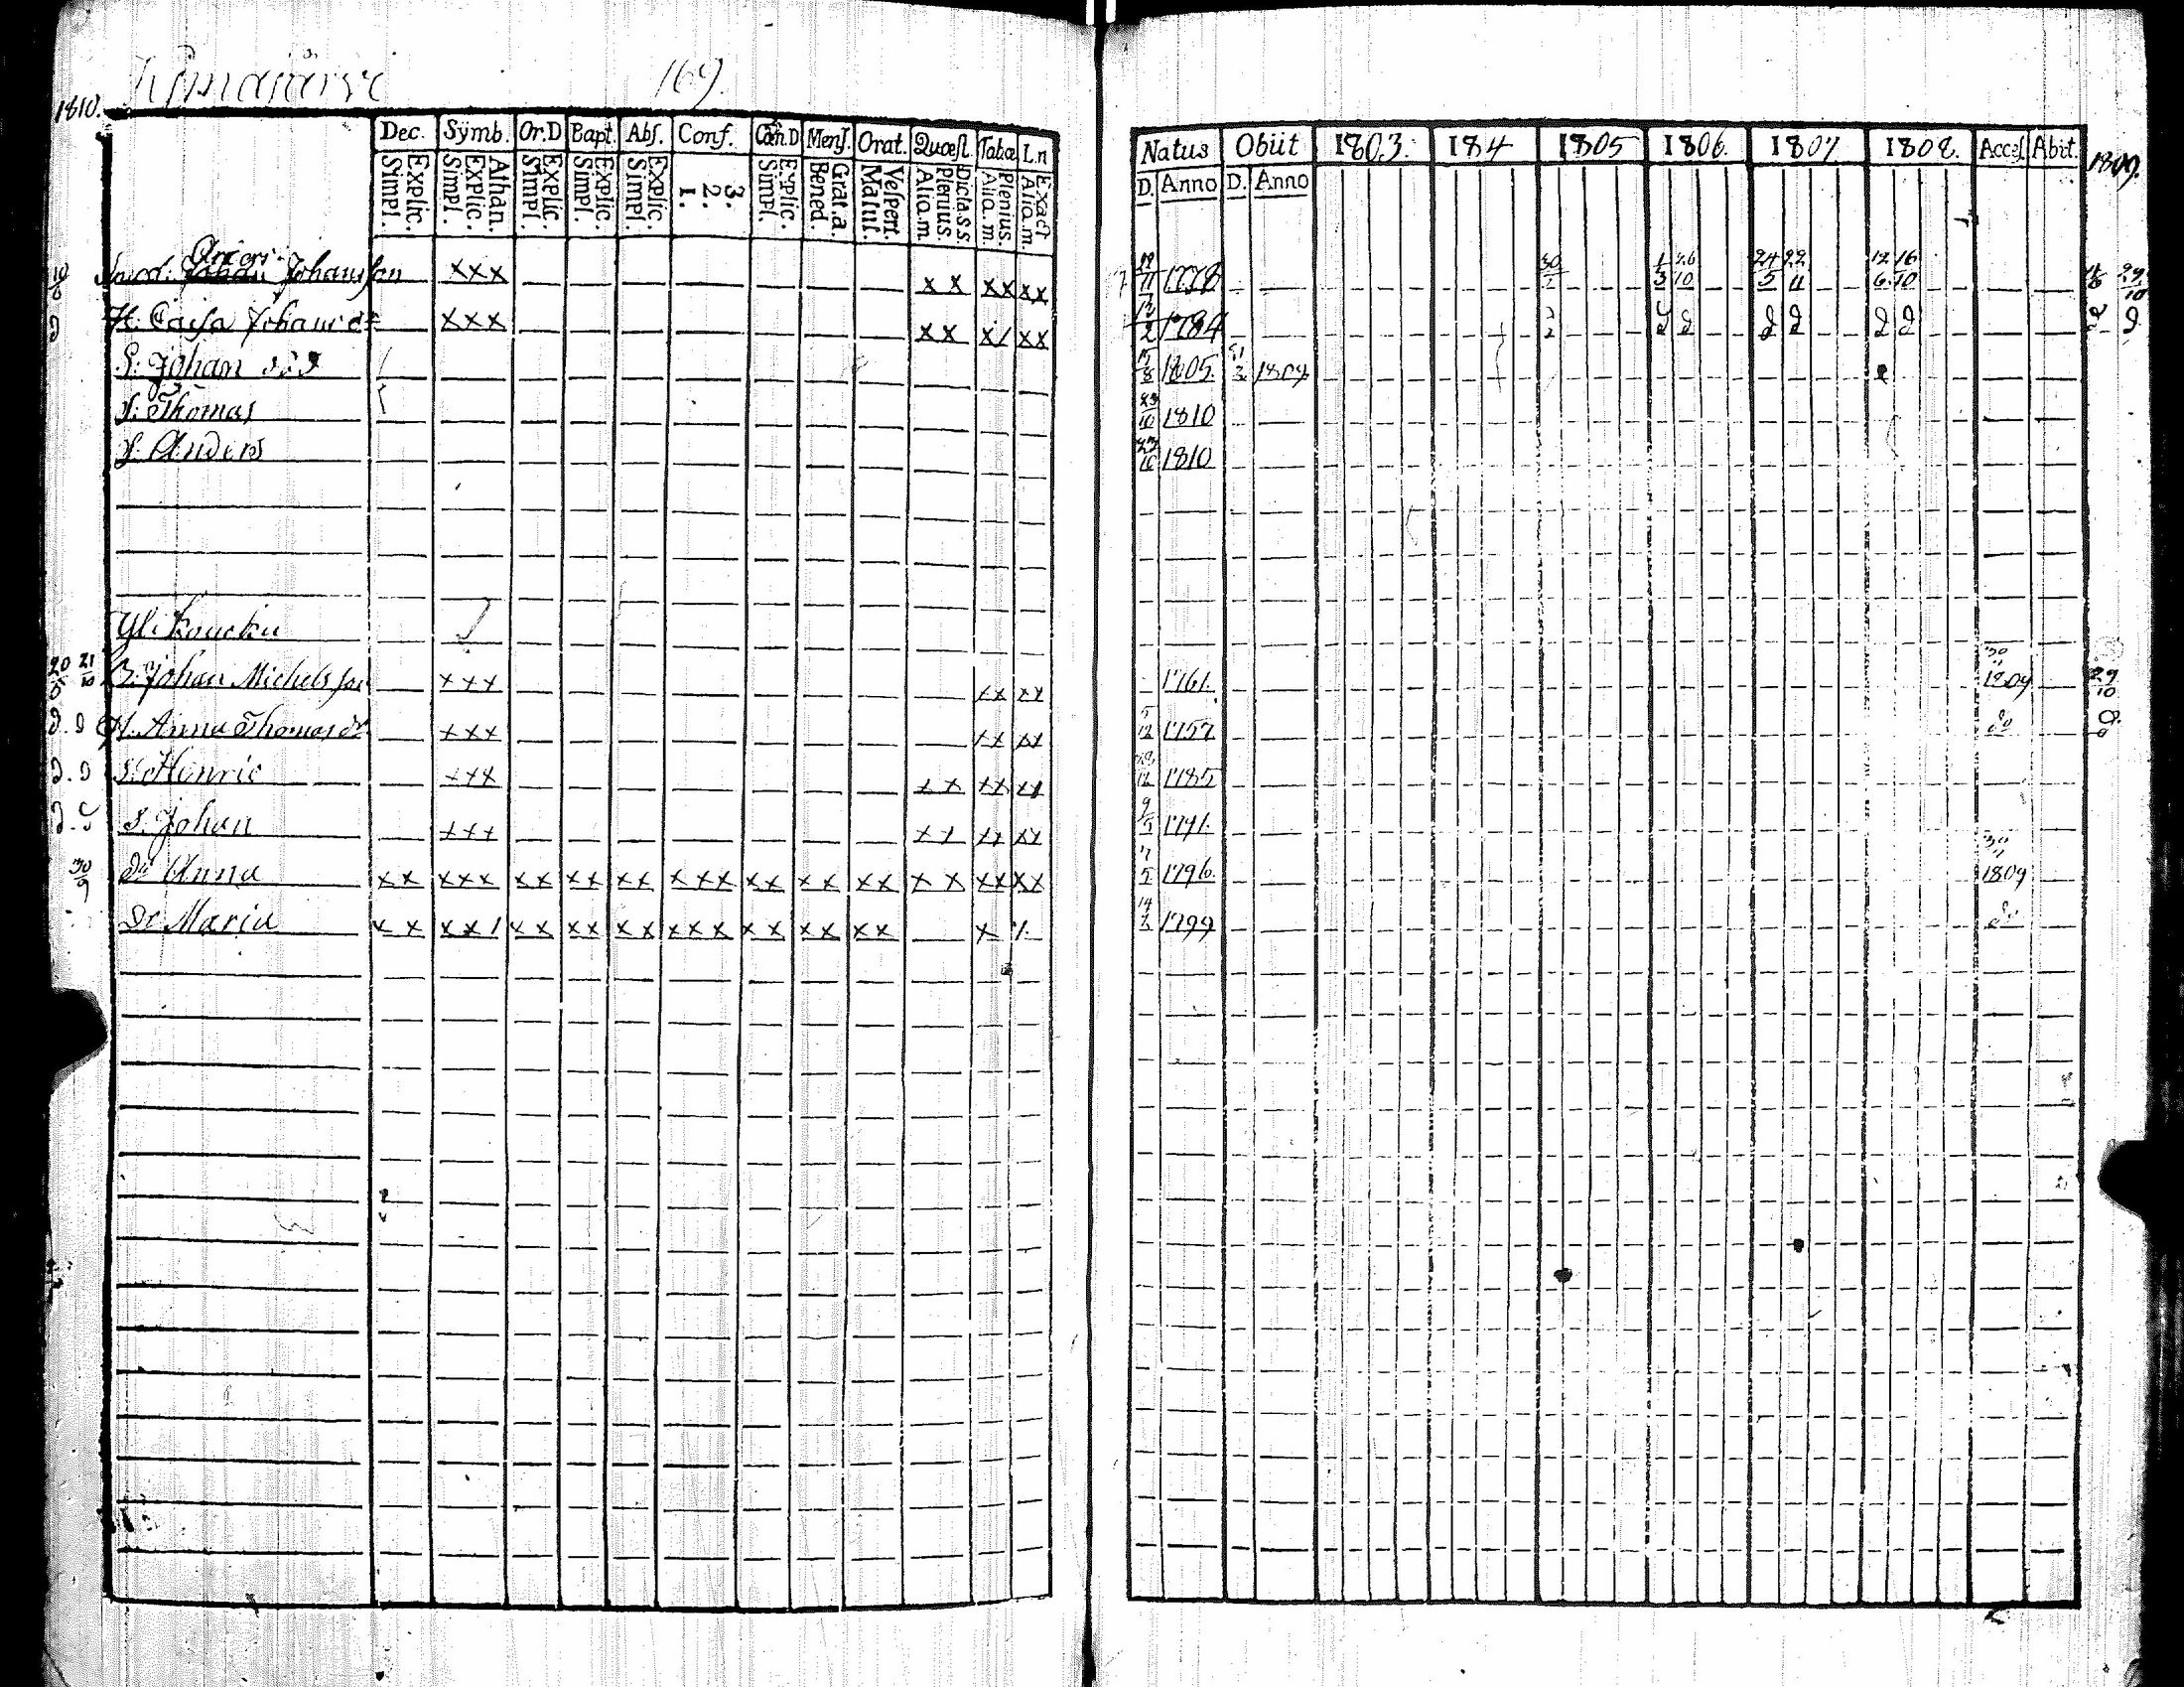 Kÿmäjärvi 169.
1810.
Dec. Sÿmb. Or.D Bapt. Abs. Conf. Cœn.D Mens. Orat. Quæst. Tabæ L.n
Explic. Simpl. Athan. Explic. Simpl. Explic. Simpl. Explic. Simpl. Explic. Simpl. 3. 2. 1. Explic. Simpl. Grat.a. Bened. Vespert. Matut. Dicta.s.s. Plenius. Alia.m Plenius. Alia.m. Exact Alia.m.
Natus Obiit 1803. 184 1805 1806. 1807 1808. Accel. Abiit. 1809.
D. Anno D. Anno
Anders
Johan Johansson xxx xx xx xx 1778 30 1/3 26/10 24/5 22/11 12/6 16/10 29/10
H. Caisa Johansdr xxx xx x/ xx 1784
S. Johan 15/8 1805 1809
S. Thomas 23/10 1810
S. Anders 23/10 1810
Yli Koucku
20/5 21/10 Johan Michelsson xxx xx xx 1761. 30 1809 29/10
H. Anna Thomasdr xxx xx xx 5/12 1757
S. Henric xxx xx xx xx 1785
S. Johan xxx xx xx xx 9/5 1791.
30/9 dr Anna xx xxx xx xx xx xxx xx xx xx xx xx xx 1796. 30 1809
Dr Maria xx xx/ xx xx xx xxx xx xx xx x 1799